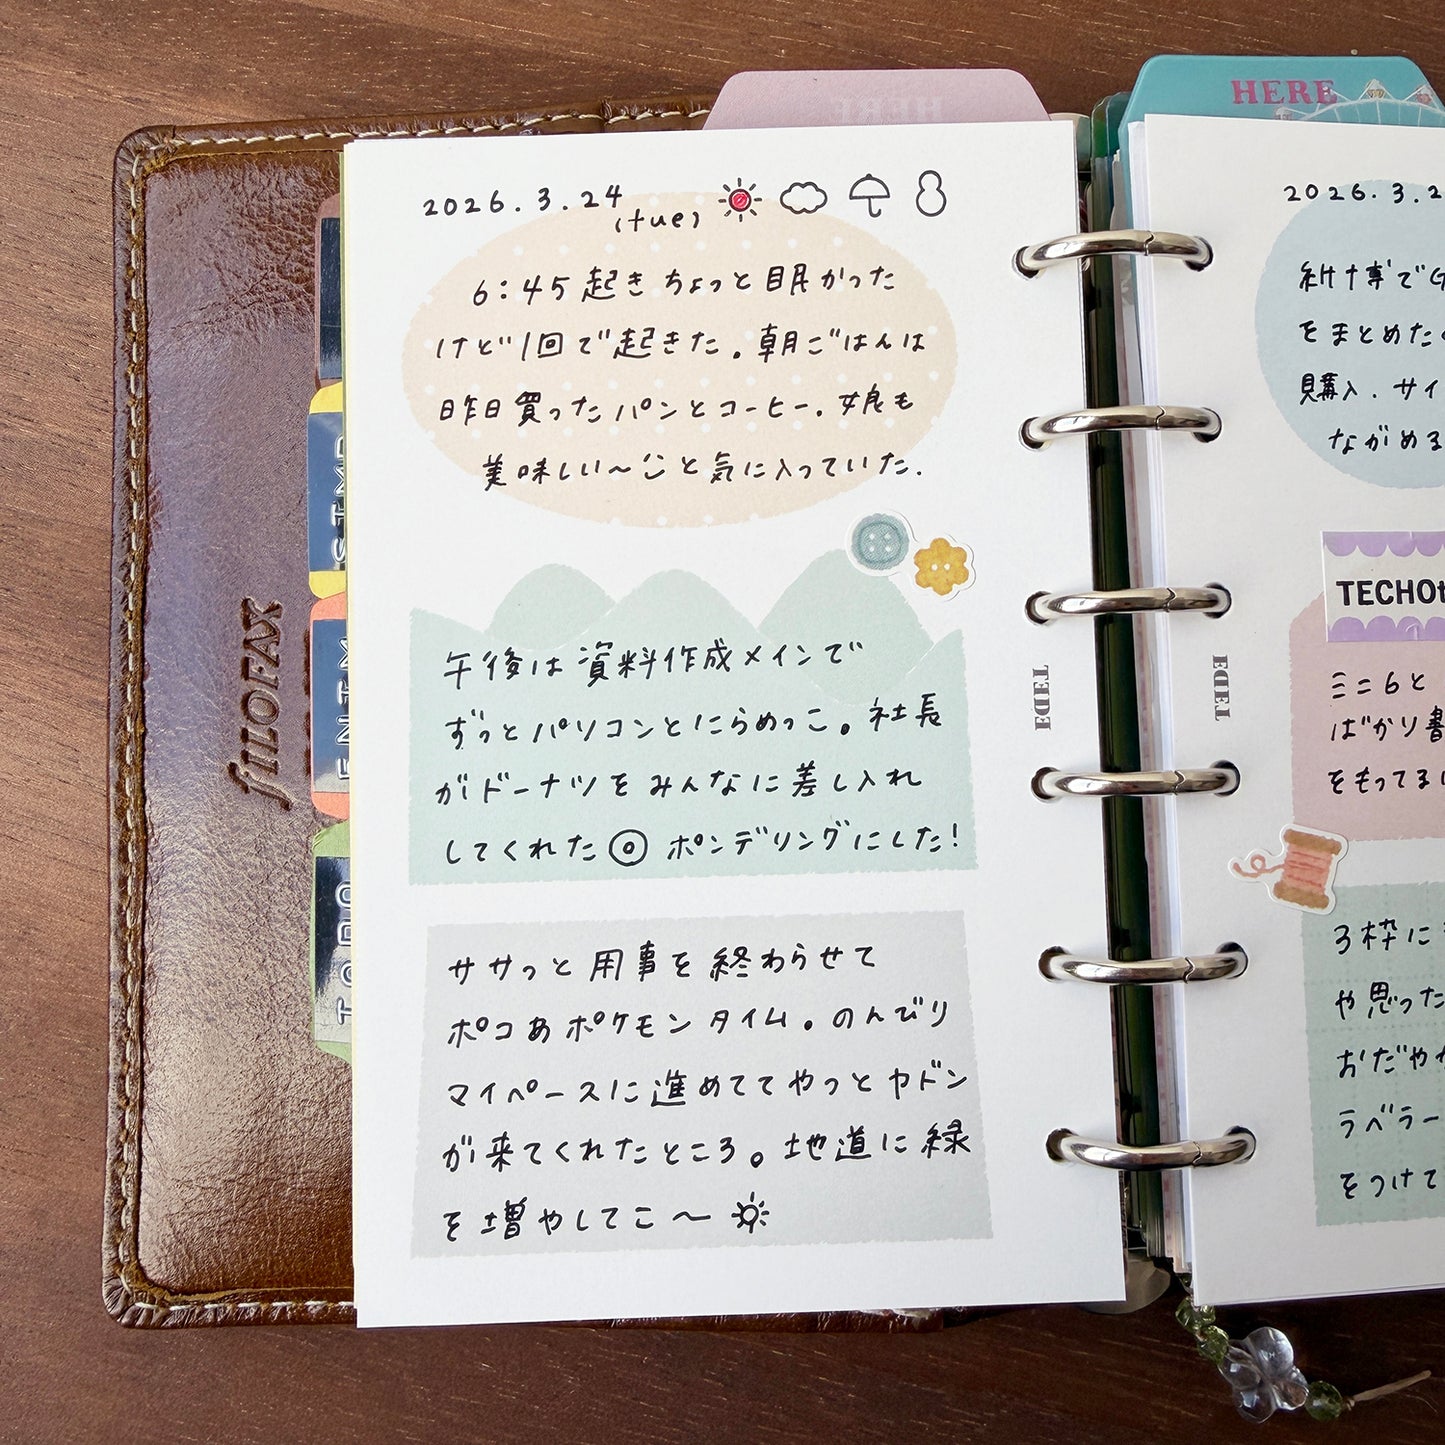 HERE
2026.3.24
(tue)
6:45起き ちょっと眠かった
けど1回で起きた。朝ごはんは
昨日買ったパンとコーヒー.娘も
美味しい〜と気に入っていた.
午後は資料作成メインで
ずっとパソコンとにらめっこ。社長
がドーナツをみんなに差し入れ
してくれた◎ポンデリングにした!
ササっと用事を終わらせて
ポコあポケモンタイム。のんびり
マイペースに進めててやっとヤドン
が来てくれたところ。地道に緑
を増やしてこ〜
FILOFAX
TODO
HERE
2026.3.2
をまとめた
購入.サイ
ながめる
TECHO
ミニ6と
ばかり書
をもってる
3枠に
や思った
おだや
ラベラー
をつけて